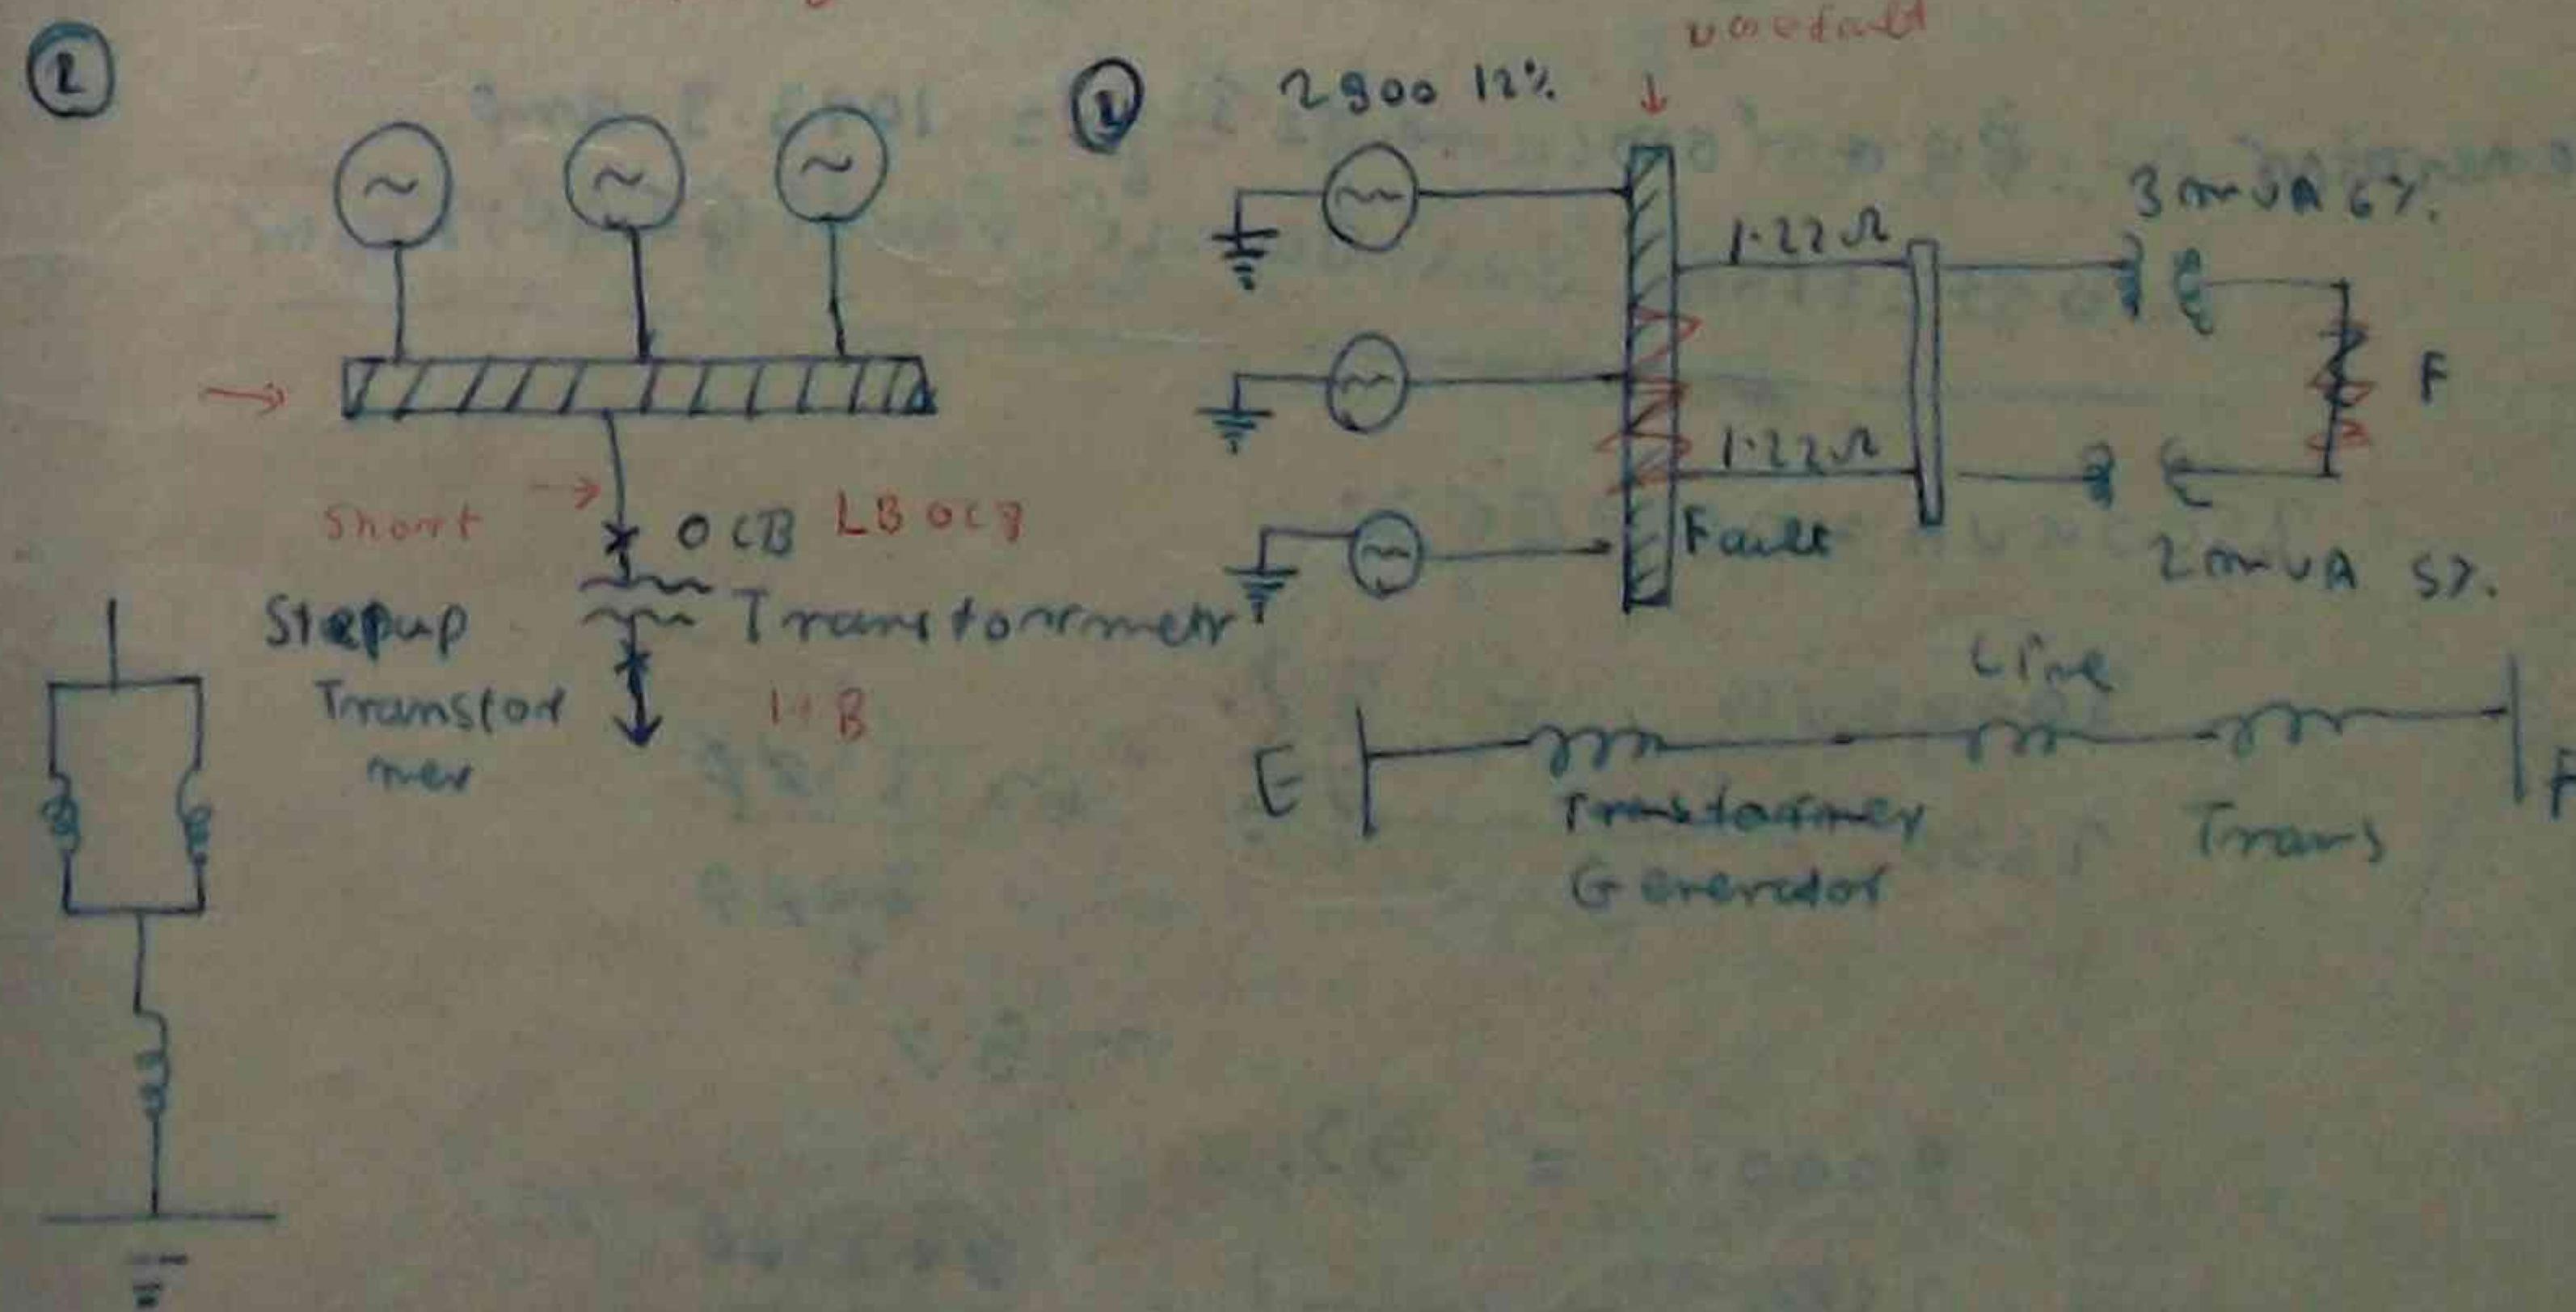 1
Short
OCB LB OCB
Stepup
Transfor
mer
Transformmetr
HB
1
2900 12%
1.22Ω
3 mVA 6%.
F
1.22Ω
Fault
2 mVA 5%.
Line
E
F
Transformer
Generator
Trans